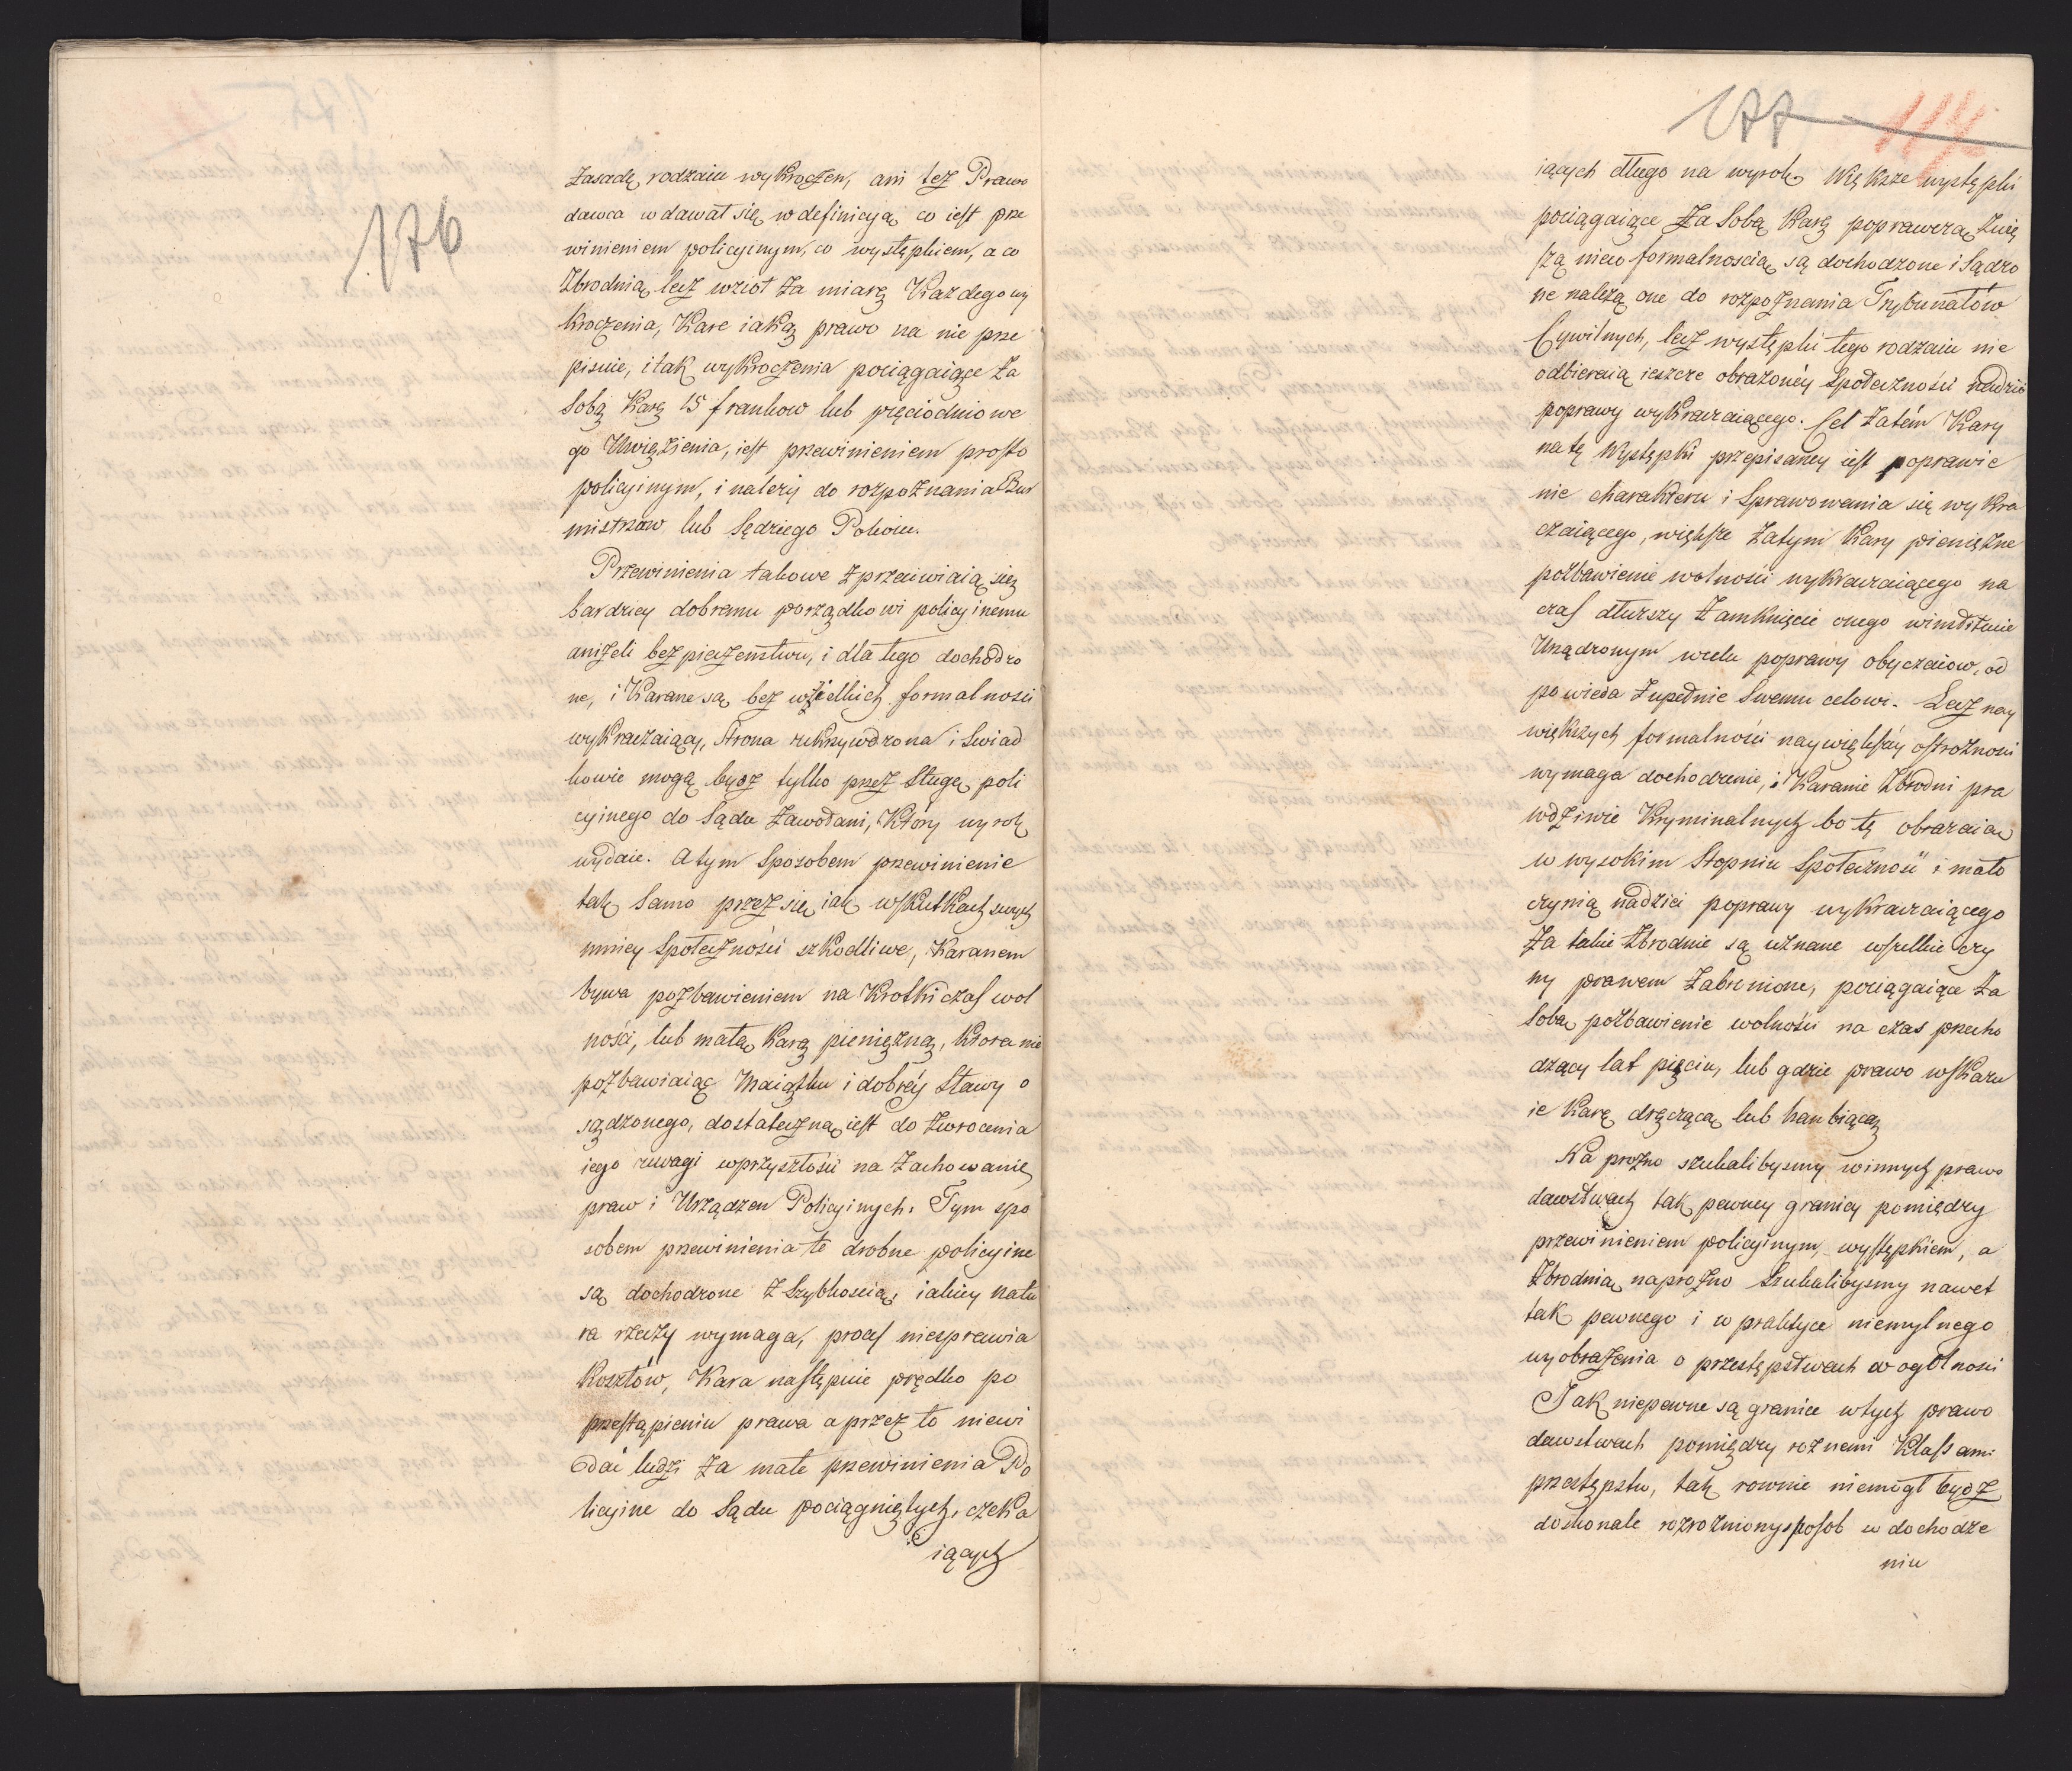 176
zasadę rodzaiu wykroczeń, ani też Prawo
dawca wdawał się w definicyą co iest prze
winieniem policyinym, co występkiem, a co
Zbrodnią, lecz wziął za miarę Każdego wy
kroczenia, Karę iaką prawo na nie prze
pisuie, i tak wykroczenia pociągaiące za
sobą Karę 15 franków lub pięciodniowe
go Uwięzienia, iest przewinieniem prosto
policyinym, i należy do rozpoznania Bur
mistrzów lub Sędziego Pokoiu.
Przewinienia takowe zprzeciwiaią się
bardziey dobremu porządkowi policyinemu
aniżeli bezpieczeństwu, i dla tego dochodzo
ne, i Karane są bez wszelkich formalnosci
wykraczaiący, strona ukrzywdzona i Swiad
kowie mogą bydz tylko przez Sługę poli
cyinego do Sądu Zawołani, Który wyrok
wydaie. A tym sposobem przewinienie
tak samo przez się iak w skutkach swych
mniey społeczności szkodliwe, Karanem
bywa pozbawieniem na Krotki czas wol
ności, lub małą Karą pieniężną, Ktora nie
pozbawiaiąc Maiątku i dobréy Sławy o
sądzonego, dostateczną iest do zwrocenia
iego uwagi w przyszłości na Zachowanie
praw i Urządzeń Policyinych. Tym spo
sobem przewinienia te drobne policyine
są dochodzone z szybkoscią, iakiey natu
ra rzeczy wymaga, proces niesprawia
Kosztów, Kara następuie prędko po
przestąpieniu prawa a przez to niewi
dać ludzi za małe przewinienia Po
licyine do Sądu pociągniętych, czeka
iących
177
iących długo na wyrok. Większe występki
pociągaiące Za Sobą Karę poprawczą Zwię
szą nieco formalnoscią są dochodzone i Sądzo
ne należą one do rozpoznania Trybunałów
Cywilnych, lecz występki tego rodzaiu nie
odbieraią ieszcze obrażonéy Społeczności nadziei
poprawy wykraczaiącego. Cel zatém Kary
na tę Występki przepisaney iest poprawie
nie charakteru i Sprawowania się wykra
czaiącego, większe Zatym Kary pieniężne
pozbawienie wolnosci wykraczaiącego na
czas dłuższy Zamknięcie onego w
Urządzonym w celu poprawy obyczaiow, od
powieda Zupełnie Swemu celowi. Lecz nay
większych formalności naywiększéy ostrożnosci
wymaga dochodzenie, i Karanie Zbrodni pra
wdziwie Kryminalnych bo te obrażaią
w wysokim Stopniu Społeczność i mało
czynią nadziei poprawy wykraczaiącego
Za takie Zbrodnie są uznane wszelkie czy
ny prawem Zabronione, pociągaiące Za
Sobą pozbawienie wolności na czas przecho
dzący lat pięciu, lub gdzie prawo wskazu
ie Karę dręczącą lub hanbiącą
Na prożno szukalibysmy w innych prawo
dawstwach tak pewney granicy pomiędzy
przewinieniem policyinym, występkiem, a
Zbrodnią napróżno Szukalibysmy nawet
tak pewnego i w praktyce niemylnego
wyobrażenia o przestępstwach w ogólnosci
Jak niepewne są granice w tych prawo
dawstwach pomiędzy rożnemi Klassami
przestępstw, tak rownie niemógł bydz
doskonale rozrożniony sposob w dochodze
niu